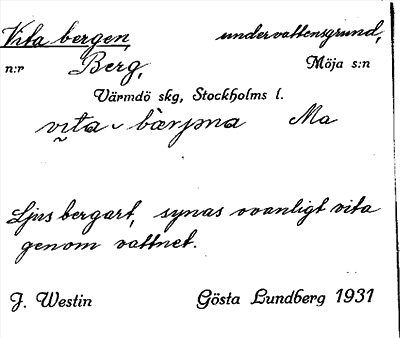 Vita bergen, undervattensgrund,
n:r Berg, Möja s:n
Värmdö skg, Stockholms l.
vita Ma
Ljus bergart, synas ovanligt vita
genom vattnet.
J. Westin Gösta Lundberg 1931